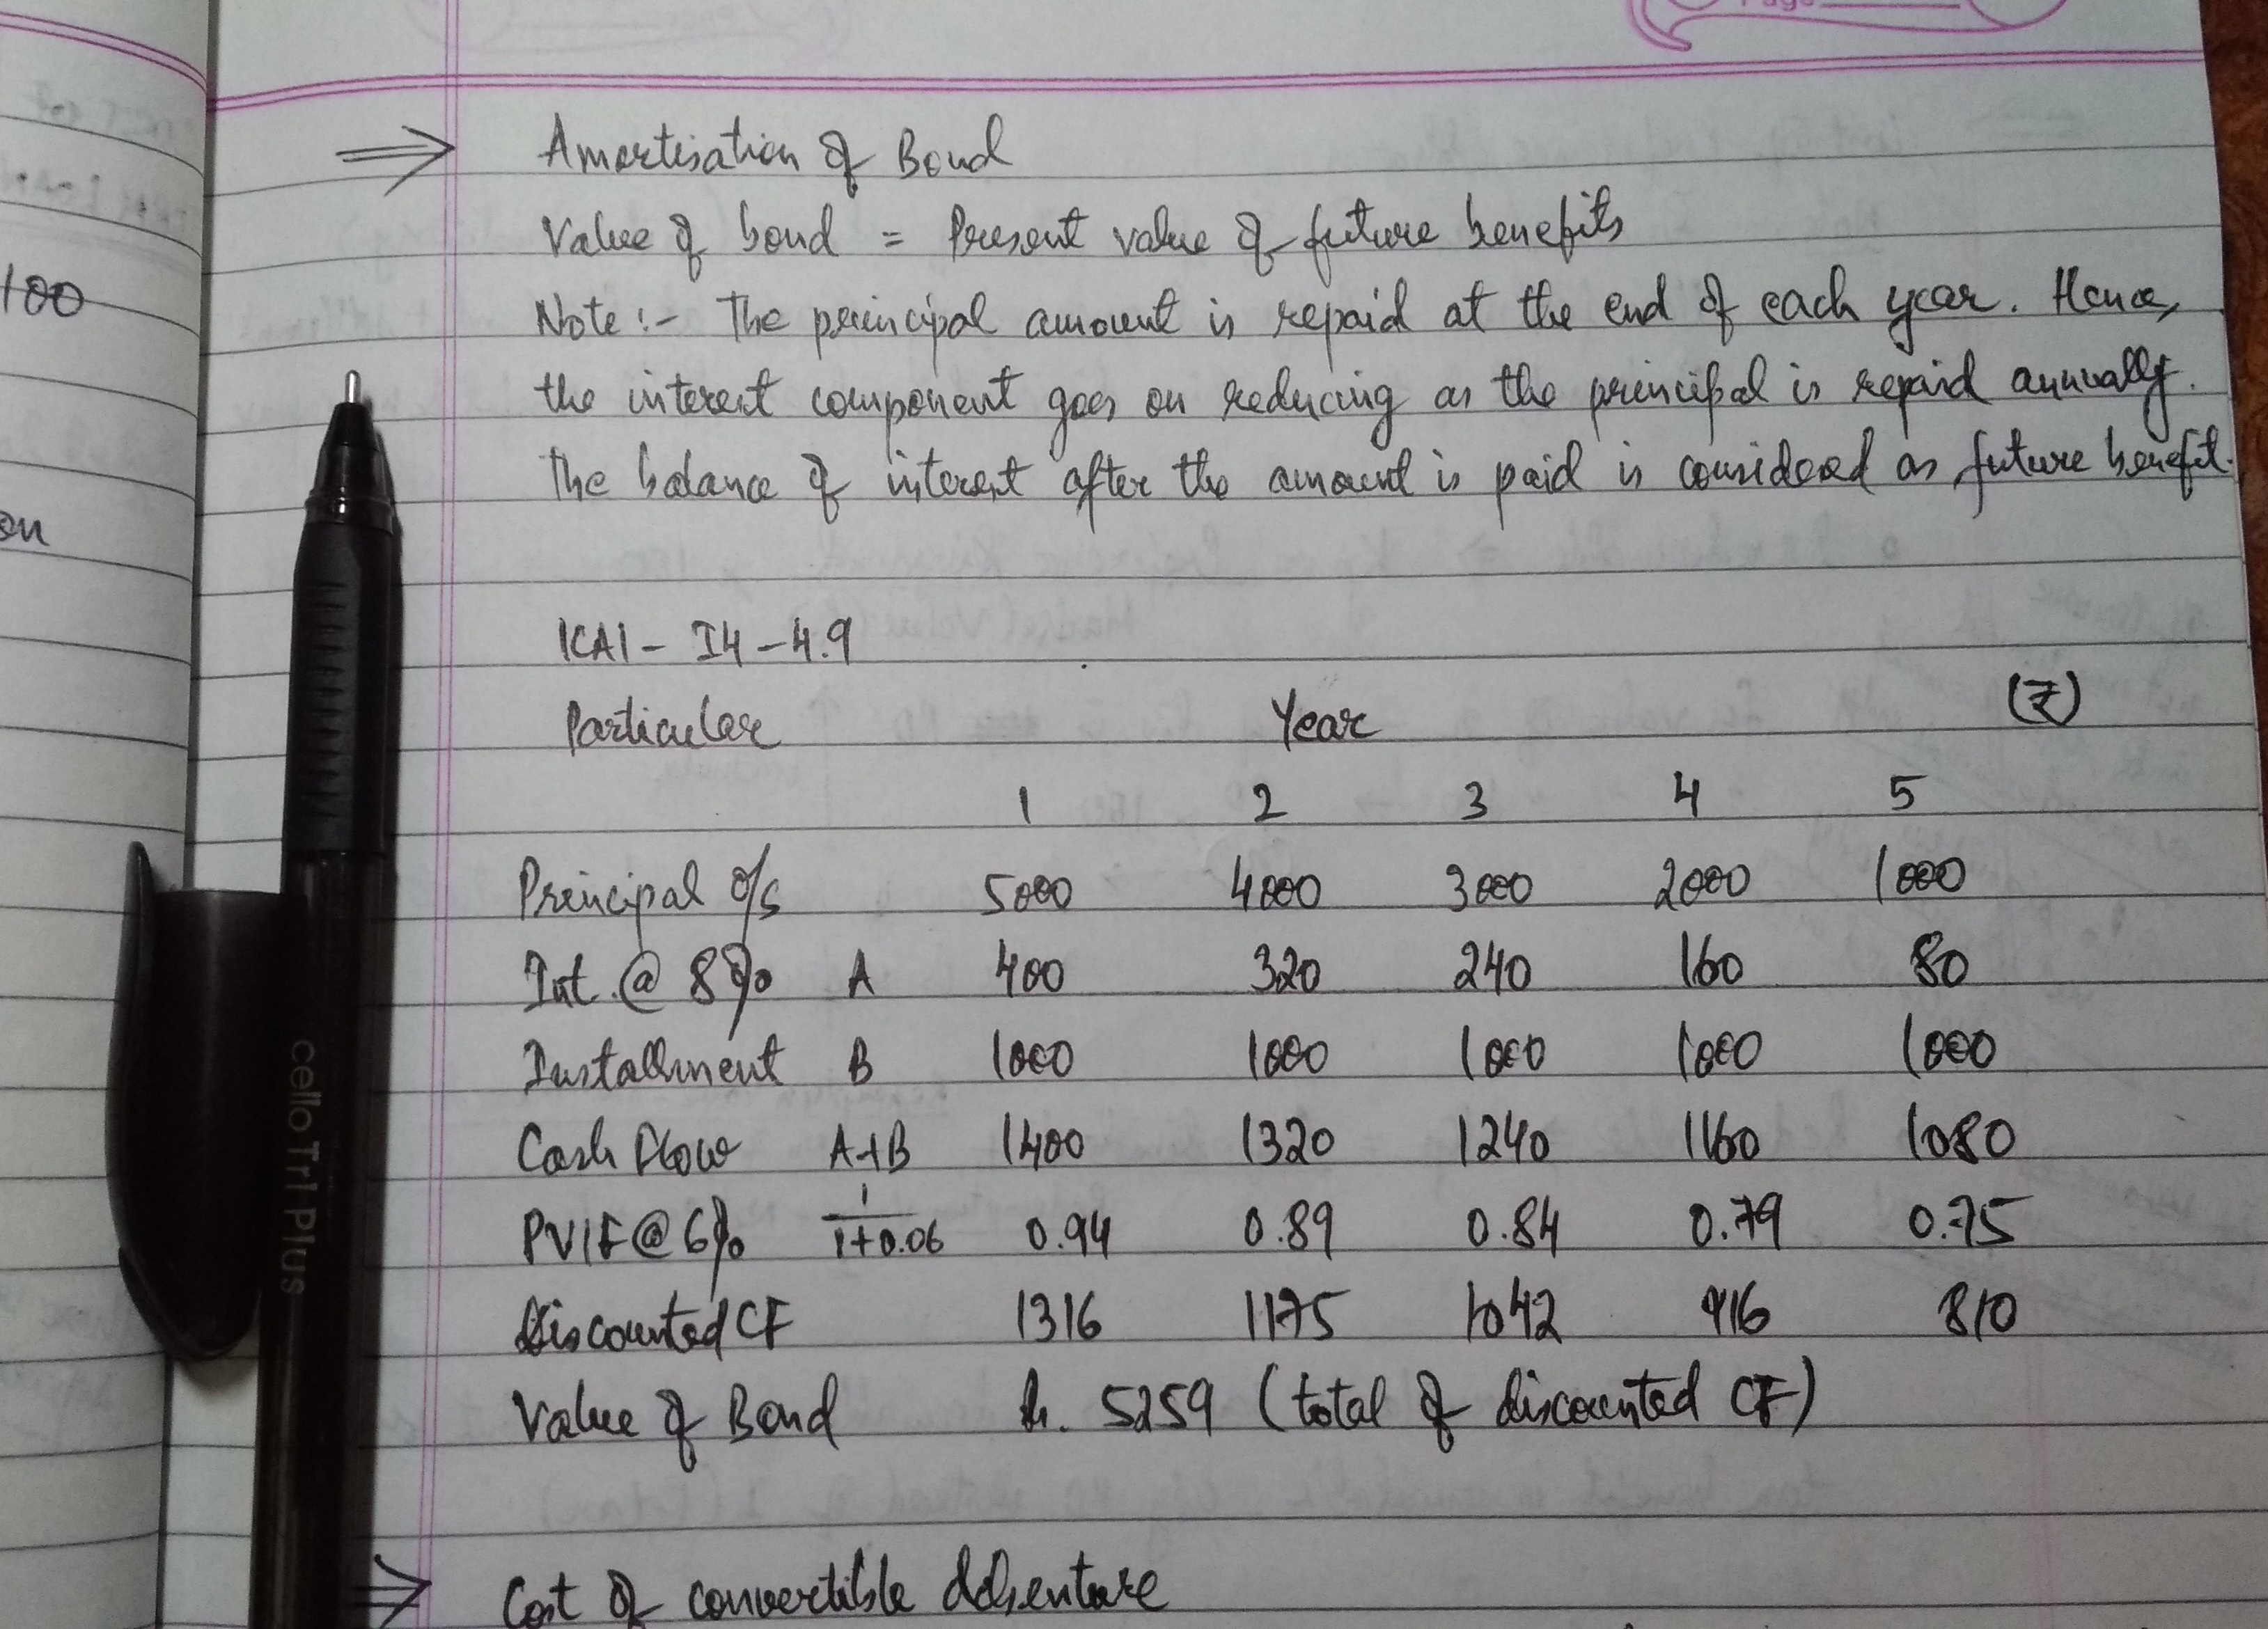 Page
100
on
⇒ Amortisation of Bond
Value of bond = Present value of future benefits
Note :- The principal amount is repaid at the end of each year. Hence,
the interest component goes on reducing as the principal is repaid annually.
The balance of interest after the amount is paid is considered as future benefit.
ICAI - I4 - 4.9
Particular Year (₹)
1 2 3 4 5
Principal o/s 5000 4000 3000 2000 1000
Int. @ 8% A 400 320 240 160 80
Installment B 1000 1000 1000 1000 1000
Cash Flow A+B 1400 1320 1240 1160 1080
PVIF @ 6% 1/1+0.06 0.94 0.89 0.84 0.79 0.75
Discounted CF 1316 1175 1042 916 810
Value of Bond Rs. 5259 (total of discounted CF)
⇒ Cost of convertible debenture
cello Tr1 Plus